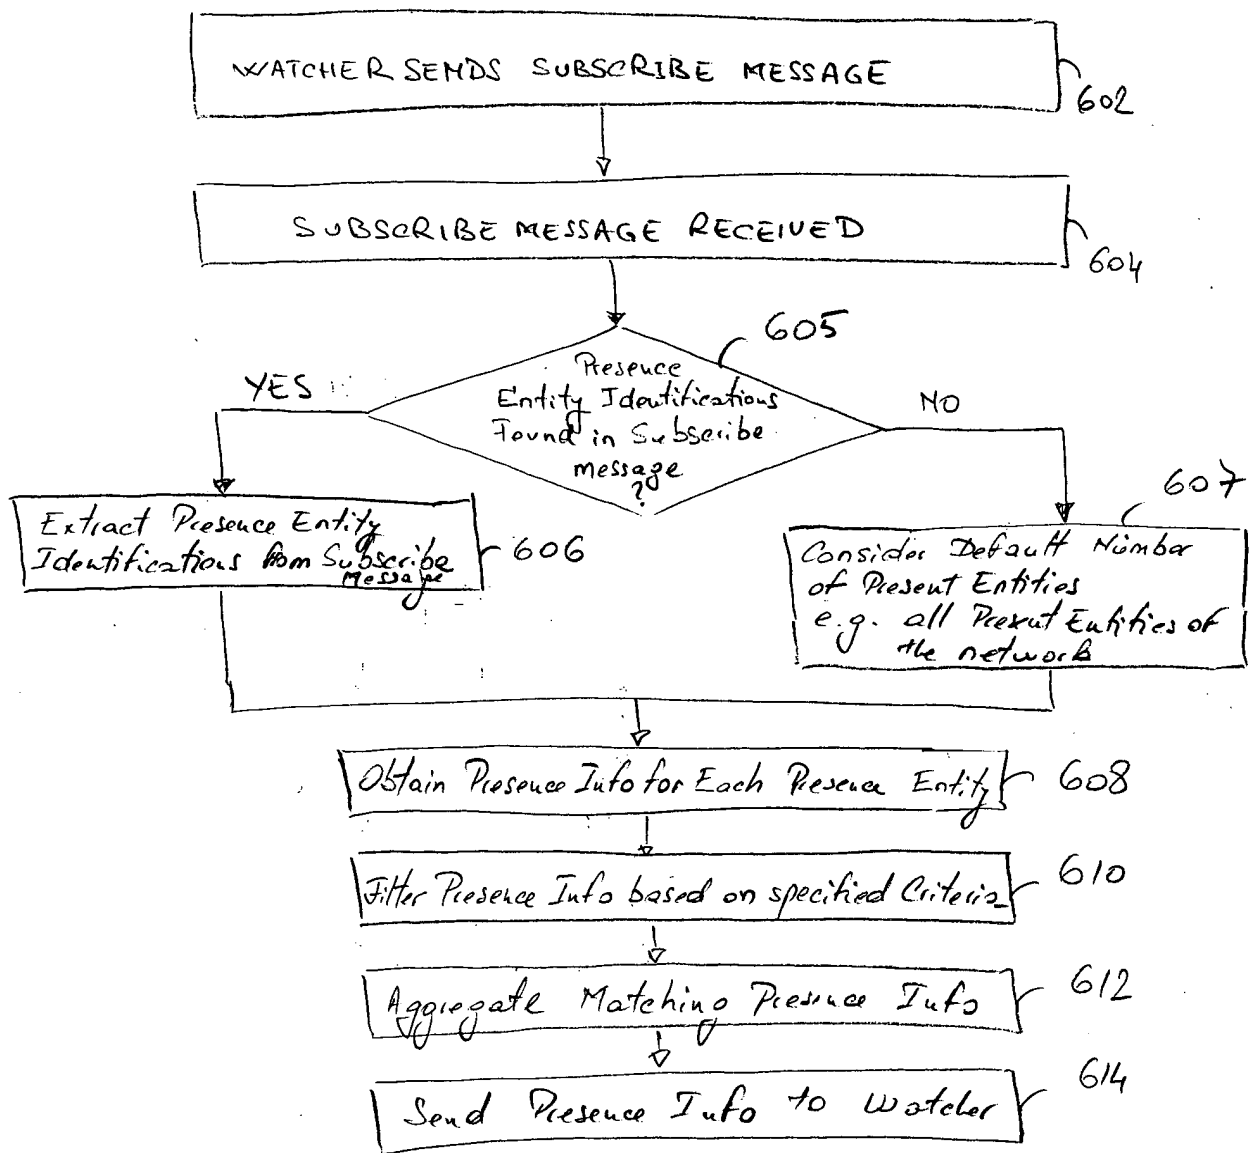 WATCHER SENDS SUBSCRIBE MESSAGE
602
SUBSCRIBE MESSAGE RECEIVED
604
605
Presence
Entity Identifications
Found in Subscribe
message
?
YES
NO
606
Extract Presence Entity
Identifications from Subscribe
Message
607
Consider Default Number
of Present Entities
e.g. all Present Entities of
the network
Obtain Presence Info for Each Presence Entity
608
Filter Presence Info based on specified Criteria
610
Aggregate Matching Presence Info
612
Send Presence Info to Watcher
614